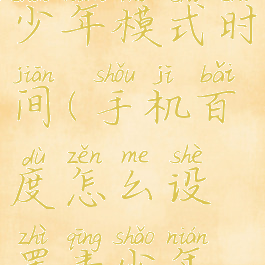 少年模式时
jiān shǒu jī bǎi
间(手机百
dù zěn me shè
度怎么设
zhì qīng shǎo nián
置青少年